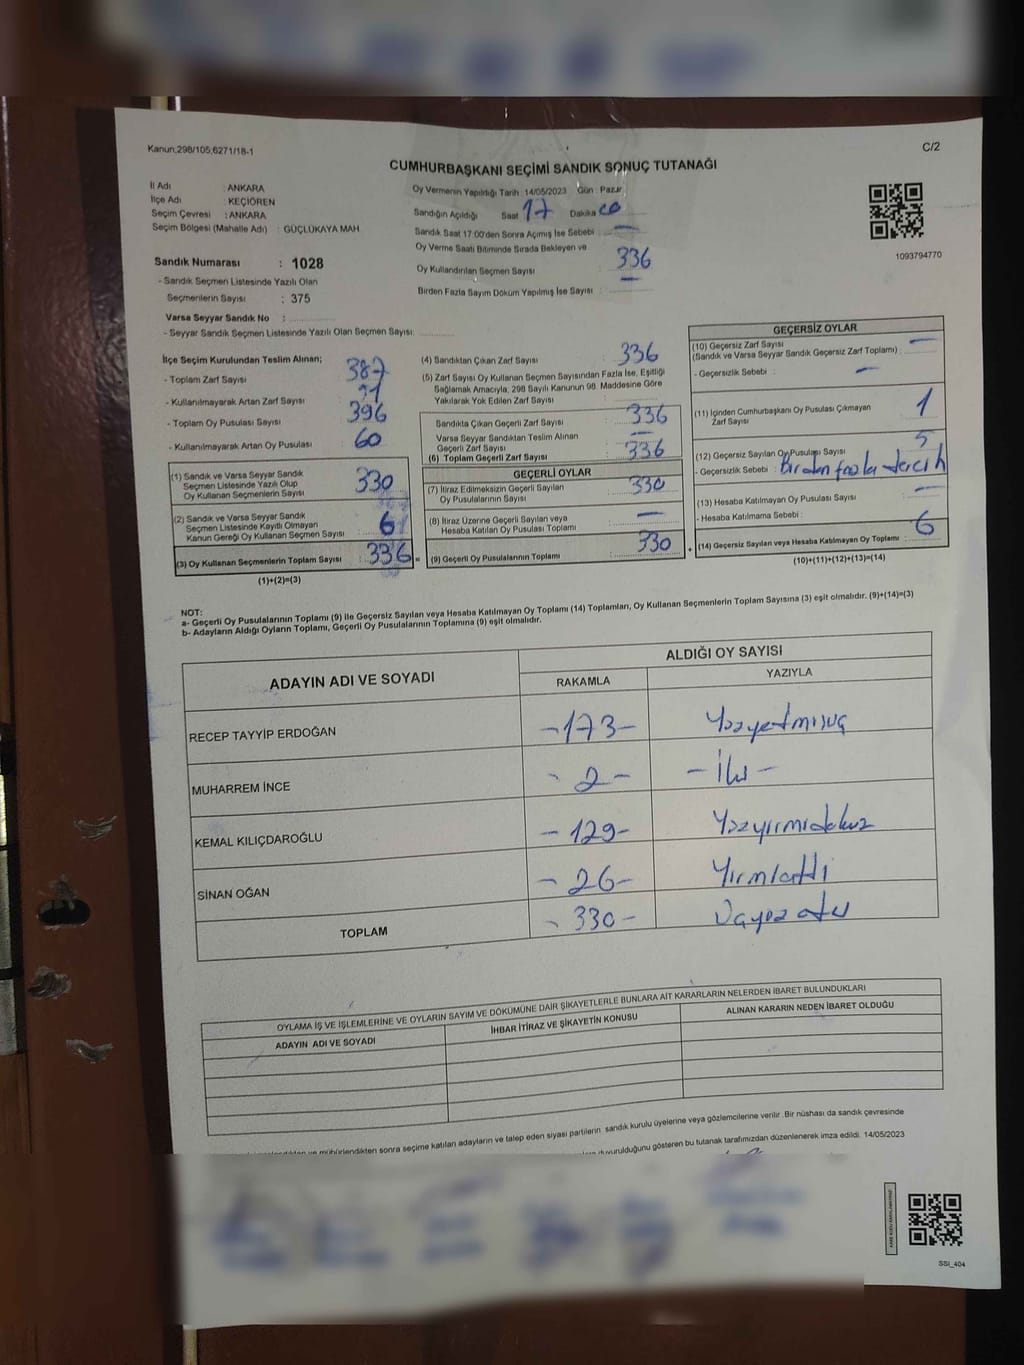 Kanun;298/105,6271/18-1
C/2
CUMHURBAŞKANI SEÇİMİ SANDIK SONUÇ TUTANAĞI
İl Adı : ANKARA
İlçe Adı : KEÇİÖREN
Seçim Çevresi : ANKARA
Seçim Bölgesi (Mahalle Adı) : GÜÇLÜKAYA MAH.
Sandık Numarası : 1028
- Sandık Seçmen Listesinde Yazılı Olan
Seçmenlerin Sayısı : 375
Varsa Seyyar Sandık No :
- Seyyar Sandık Seçmen Listesinde Yazılı Olan Seçmen Sayısı:
Oy Vermenin Yapıldığı Tarih : 14/05/2023 Gün : Pazar
Sandığın Açıldığı Saat 17 Dakika 00
Sandık Saat 17:00'den Sonra Açımış İse Sebebi : —
Oy Verme Saati Bitiminde Sırada Bekleyen ve
Oy Kullandırılan Seçmen Sayısı : 336
Birden Fazla Sayım Döküm Yapılmış İse Sayısı : —
1093794770
İlçe Seçim Kurulundan Teslim Alınan;
- Toplam Zarf Sayısı : 387
- Kullanılmayarak Artan Zarf Sayısı :
- Toplam Oy Pusulası Sayısı : 396
- Kullanılmayarak Artan Oy Pusulası : 60
(1) Sandık ve Varsa Seyyar Sandık
Seçmen Listesinde Yazılı Olup
Oy Kullanan Seçmenlerin Sayısı : 330
(2) Sandık ve Varsa Seyyar Sandık
Seçmen Listesinde Kayıtlı Olmayan
Kanun Gereği Oy Kullanan Seçmen Sayısı : 6
(3) Oy Kullanan Seçmenlerin Toplam Sayısı : 336 =
(1)+(2)=(3)
(4) Sandıktan Çıkan Zarf Sayısı : 336
(5) Zarf Sayısı Oy Kullanan Seçmen Sayısından Fazla İse, Eşitliği
Sağlamak Amacıyla, 298 Sayılı Kanunun 98. Maddesine Göre
Yakılarak Yok Edilen Zarf Sayısı :
Sandıkta Çıkan Geçerli Zarf Sayısı : 336
Varsa Seyyar Sandıktan Teslim Alınan
Geçerli Zarf Sayısı : —
(6) Toplam Geçerli Zarf Sayısı : 336
GEÇERLİ OYLAR
(7) İtiraz Edilmeksizin Geçerli Sayılan
Oy Pusulalarının Sayısı : 330
(8) İtiraz Üzerine Geçerli Sayılan veya
Hesaba Katılan Oy Pusulası Toplamı : —
(9) Geçerli Oy Pusulalarının Toplamı : 330 +
GEÇERSİZ OYLAR
(10) Geçersiz Zarf Sayısı
(Sandık ve Varsa Seyyar Sandık Geçersiz Zarf Toplamı) : —
- Geçersizlik Sebebi : —
(11) İçinden Cumhurbaşkanı Oy Pusulası Çıkmayan
Zarf Sayısı : 1
(12) Geçersiz Sayılan Oy Pusulası Sayısı : 5
- Geçersizlik Sebebi : Birden fazla tercih
(13) Hesaba Katılmayan Oy Pusulası Sayısı : —
- Hesaba Katılmama Sebebi :
(14) Geçersiz Sayılan veya Hesaba Katılmayan Oy Toplamı : 6
(10)+(11)+(12)+(13)=(14)
NOT:
a- Geçerli Oy Pusulalarının Toplamı (9) ile Geçersiz Sayılan veya Hesaba Katılmayan Oy Toplamı (14) Toplamları, Oy Kullanan Seçmenlerin Toplam Sayısına (3) eşit olmalıdır. (9)+(14)=(3)
b- Adayların Aldığı Oyların Toplamı, Geçerli Oy Pusulalarının Toplamına (9) eşit olmalıdır.
ADAYIN ADI VE SOYADI
ALDIĞI OY SAYISI
RAKAMLA YAZIYLA
RECEP TAYYİP ERDOĞAN -173- Yüzyetmişüç
MUHARREM İNCE -2- -İki-
KEMAL KILIÇDAROĞLU -129- Yüzyirmidokuz
SİNAN OĞAN -26- Yirmialtı
TOPLAM -330- Üçyüzotuz
OYLAMA İŞ VE İŞLEMLERİNE VE OYLARIN SAYIM VE DÖKÜMÜNE DAİR ŞİKAYETLERLE BUNLARA AİT KARARLARIN NELERDEN İBARET BULUNDUKLARI
ADAYIN ADI VE SOYADI İHBAR İTİRAZ VE ŞİKAYETİN KONUSU ALINAN KARARIN NEDEN İBARET OLDUĞU
mühürlendikten sonra seçime katılan adayların ve talep eden siyasi partilerin sandık kurulu üyelerine veya gözlemcilerine verilir. Bir nüshası da sandık çevresinde
duyurulduğunu gösteren bu tutanak tarafımızdan düzenlenerek imza edildi. 14/05/2023
SSİ_404